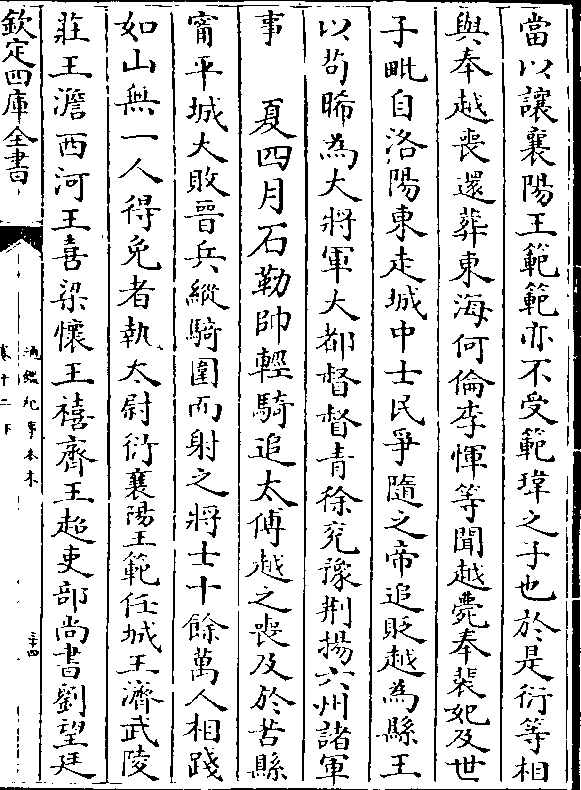 當以讓襄陽王範範亦不受範瑋之子也於是衍等相
與奉越喪還葬東海何倫李惲等聞越薨奉裴妃及世
子毗自洛陽東走城中士民爭隨之帝追貶越為縣王
以茍晞為大將軍大都督督青徐兗豫荆揚六州諸軍
事　夏四月石勒帥輕騎追太傅越之喪及於苦縣
甯平城大敗晉兵縱騎圍而射之將士十餘萬人相踐
如山無一人得免者執太尉衍襄陽王範任城王濟武陵
莊王澹西河王喜梁懷王禧齊王超吏部尚書劉望廷
欽定四庫全書
通鑑紀事本末
卷十二下
三十四